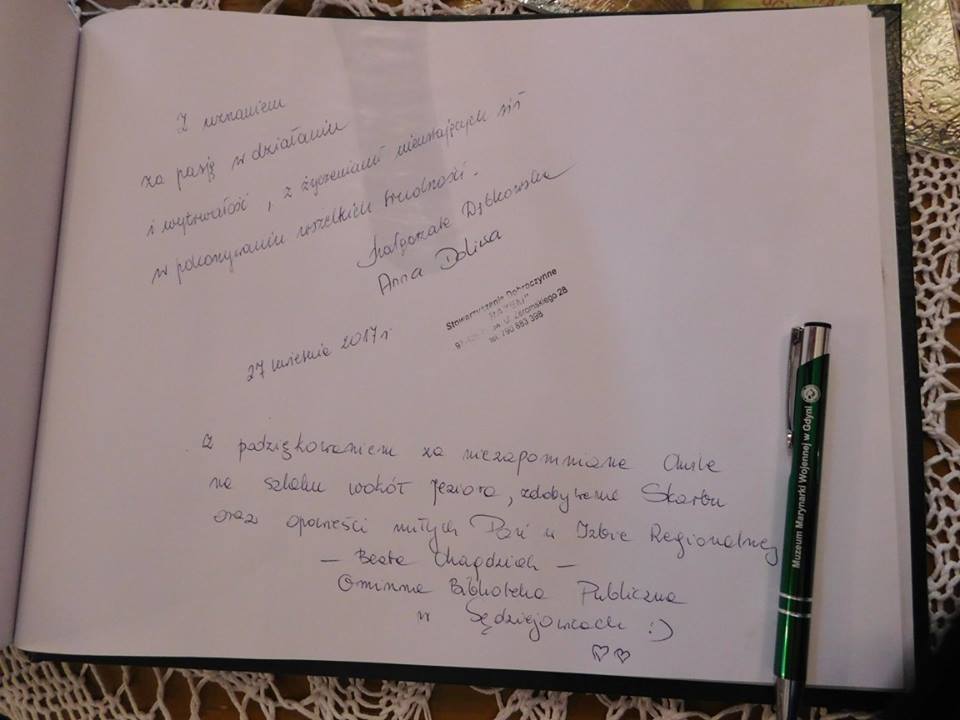 Z uznaniem
za pasję w działaniu
i wytrwałość, z życzeniami nieustających sił
w pokonywaniu wszelkich trudności.
Małgorzata Dąbkowska
Anna Doliwa
Stowarzyszenie Dobroczynne
ul. Żeromskiego 28
tel. 790 683 398
27 kwietnia 2017 r
Z podziękowaniem za niezapomniane chwile
na szlaku wokół jeziora, zdobywanie Skarbu
oraz opowieści miłych Pań w Izbie Regionalnej
— Beata —
Gminna Biblioteka Publiczna
w Sędziejowicach :)
Muzeum Marynarki Wojennej w Gdyni